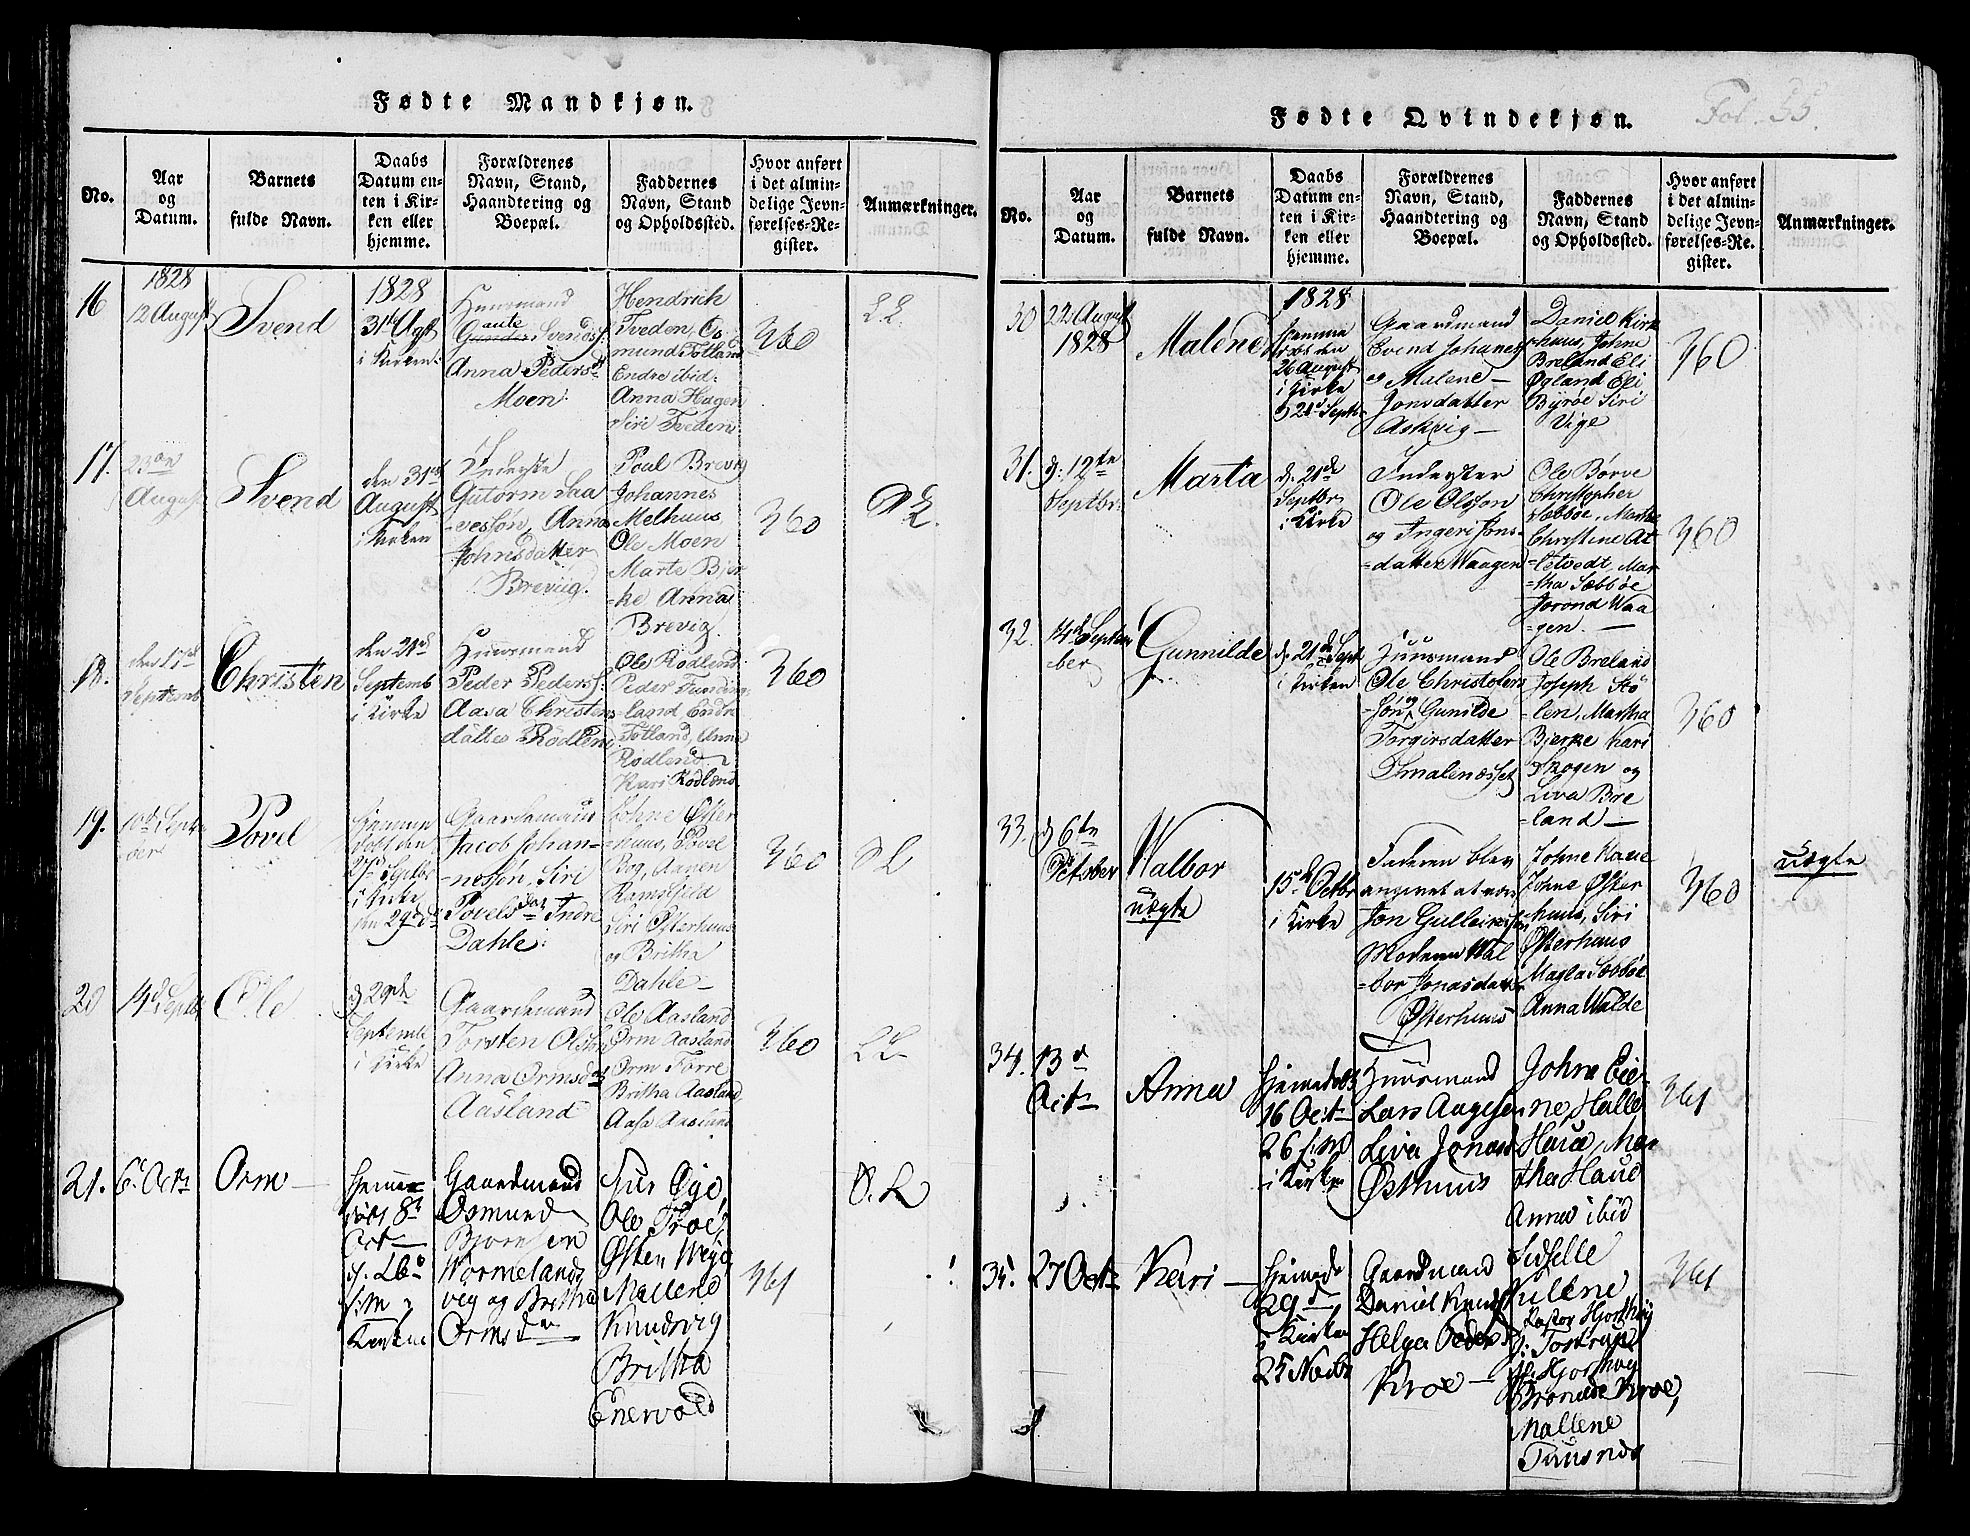 Fødte Mandkjøn.
No.
Aar
og
Datum.
Barnets
fulde Navn.
Daabs
Datum en-
ten i Kir-
ken eller
hjemme.
Forældrenes
Navn, Stand,
Haandtering og
Boepæl.
Faddernes
Navn, Stand
og Opholdssted.
Hvor anført
i det almin-
delige Jevn-
førelses-Re-
gister.
Anmærkninger.
16
1828
12 August
Svend
1828
31te Agst
i Kirken
Huusmand
Gaute Svends:
Anna Pedersd
Moen
Hendrich
Tveden, Os
mund Totland
Endre ibid:
Anna Hagen
Siri Tveden
360
17.
23de
August
Svend
den 31te
August
i Kirken
Inderste
Gutorm Saa
vessøn, Anna
Johnsdatter
Brevig.
Poul Brevig
Johannes
Melhuus
Ole Moen
Marte Bjer
-ke Anna
Brevig.
360
18.
den 17de
Septemb
Christen
den 21de
Septemb
i Kirke
Huusmand
Peder Peders:
Aasa Christens
datter Rødlend
Ole Rødlend
Peder Tunding
-land, Endre
Totland, Anna
Rødlend
Kari Rødlend
360
19.
10d Septem
ber
Povel
hjemme
døbt den
27d Septbr
i Kirke
den 29de
Gaardemand
Jacob Johan-
nessøn, Siri
Povelsdatr Indre
Dahle:
Johne Øster
-huus, Povel
Rog, Aanen
Ramsfield
Siri Østerhuus
og Britha
Dahle
360
20
14d Septb
Ole
d 29de
Septemb
i Kirke
Gaardemand
Torsten Olsøn
Anna Ormsdatr
Aasland
Ole Aasland
Orm Aasland
Orm Torre
Britha Aasland
Aasa Aasland
360
21.
6. Octr
Orm
hjemme
døbt 8de
Oct
i Kirken
Gaardmand
Osmund
Bjornsen
Wormelands
veg og Britha
Ormsdr
Sjur Øye,
Ole Proe,
Østen Weye
Mallene
Knudsvig
Britha
Enervold
361
Fol. 55.
Fødte Qvindekjøn.
No.
Aar
og
Datum.
Barnets
fulde Navn.
Daabs
Datum en-
ten i Kir-
ken eller
hjemme.
Forældrenes
Navn, Stand,
Haandtering og
Boepæl.
Faddernes
Navn, Stand
og Opholdssted.
Hvor anført
i det almin-
delige Jevn-
førelses-Re-
gister.
Anmærkninger.
30
22 August
1828
Malene
1828
hjemme
døbt den
26 August
i Kirke
d 21d Septbr
Gaardmand
Svend Johanes
og Malene
Jonsdatter
Askvig
Daniel Kirk
huus, Johne
Breland Eli
Øgland Eli
Byrøe Siri
Vige
360
31.
d. 12te
Septbr.
Marta
d. 21de
Septbr
i Kirke
Inderster
Ole Olssøn
og Ingeri Jons-
datter Waagen
Ole Børve
Christopher
Sæbbøe, Marthe
Christine At
-letvedt, Mar-
tha Sæbbøe
Jorond Waa
gen.
360
32.
14d Septem
ber
Gunnilde
d. 21d Sept
i Kirken
Huusmand
Ole Christofers
-søn, Gunilde
Torgirsdatter
Smalenæsset
Ole Breland
Joseph Stø
-len, Martha
Bjerke Kari
Skogen og
Liva Bre
-land
360
33.
d 6te
October
Walbor
uægte
15d Octbr
i Kirke
Faderen blev
angivet at være
Jon Gulleiksen
Moderen Wal
-bor Jonasdatter
Østerhuus
Johne Haue
Johne Øster
huus, Siri
Østerhuus
Magla Sæbbøe
Anna Walde
360
uægte
34.
13d
Octr
Anna
hjemedøbt
16 Octr
26 s: M
i Kirke
Huusmand
Lars Aagesen
Liva Jonasd
Østhuus
Johne Eie-
ne, Halle
Haue, Mar
tha Haue
Anna ibid
361
35.
27 Octr
Kari
hjemede
29d
i Kirke
25 Novbr
Gaardmand
Daniel Knuds
Helga Peders
Kroe
Sidselle
Julene
Pastor Hjorthøy
Hjorthøy
Kroe,
Mallene
361